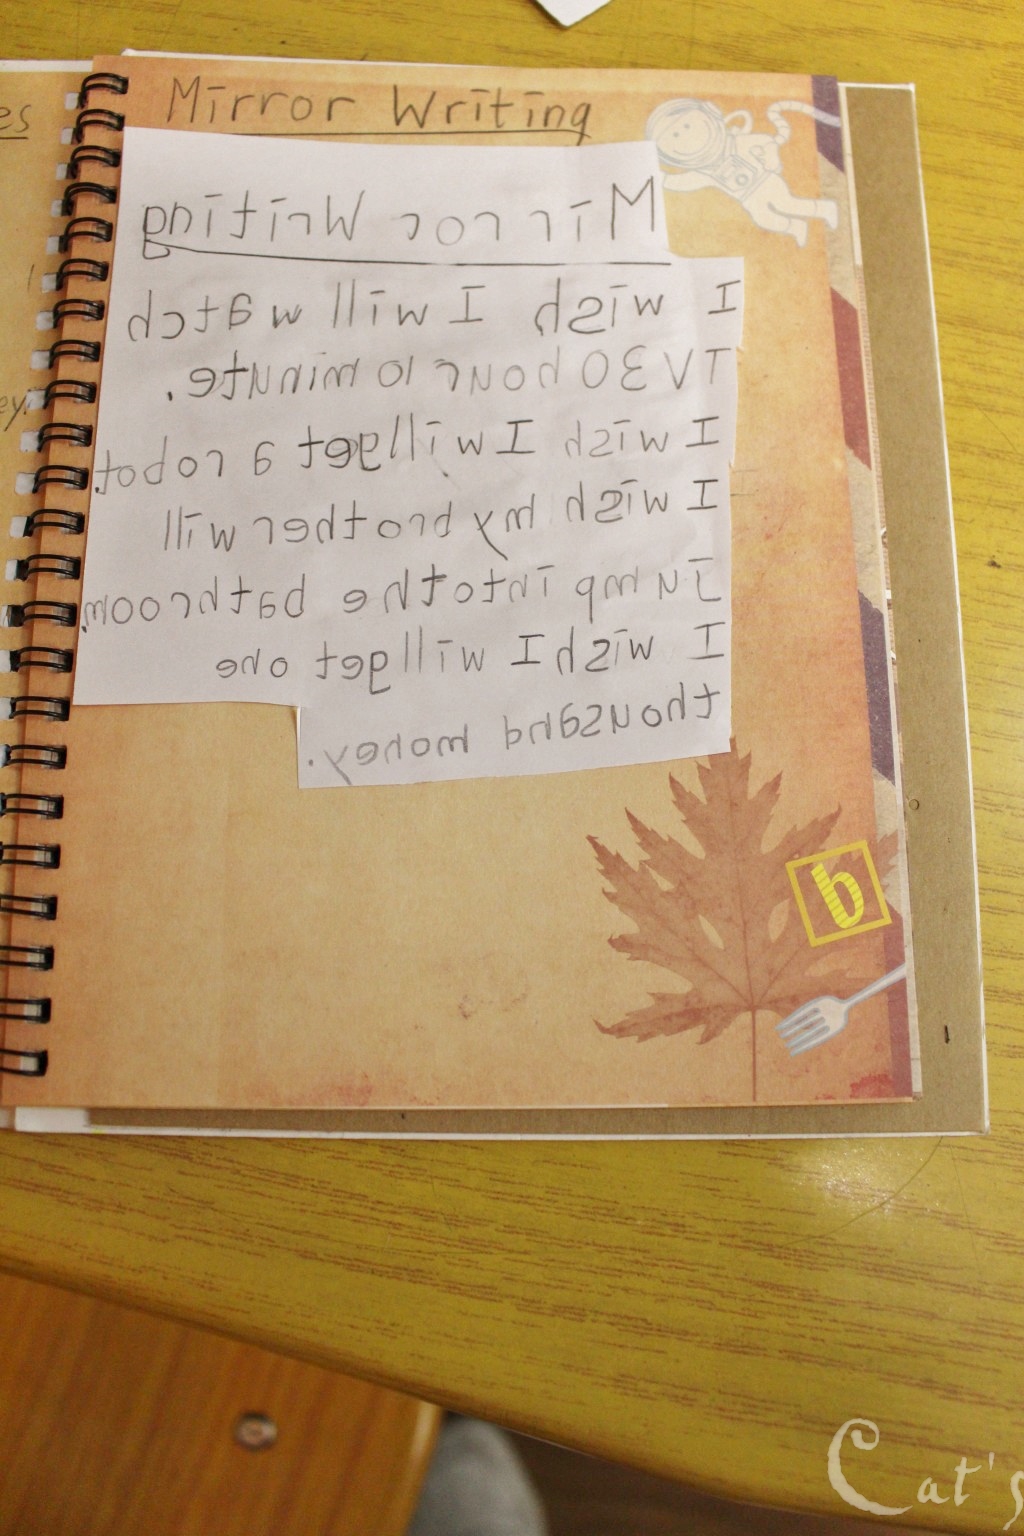 es
ey.
Mirror Writing
Mirror Writing
I wish I will watch
TV 30 hour 10 minute.
I wish I will get a robot.
I wish my brother will
jump into the bathroom.
I wish I will get one
thousand money.
b
Cat's